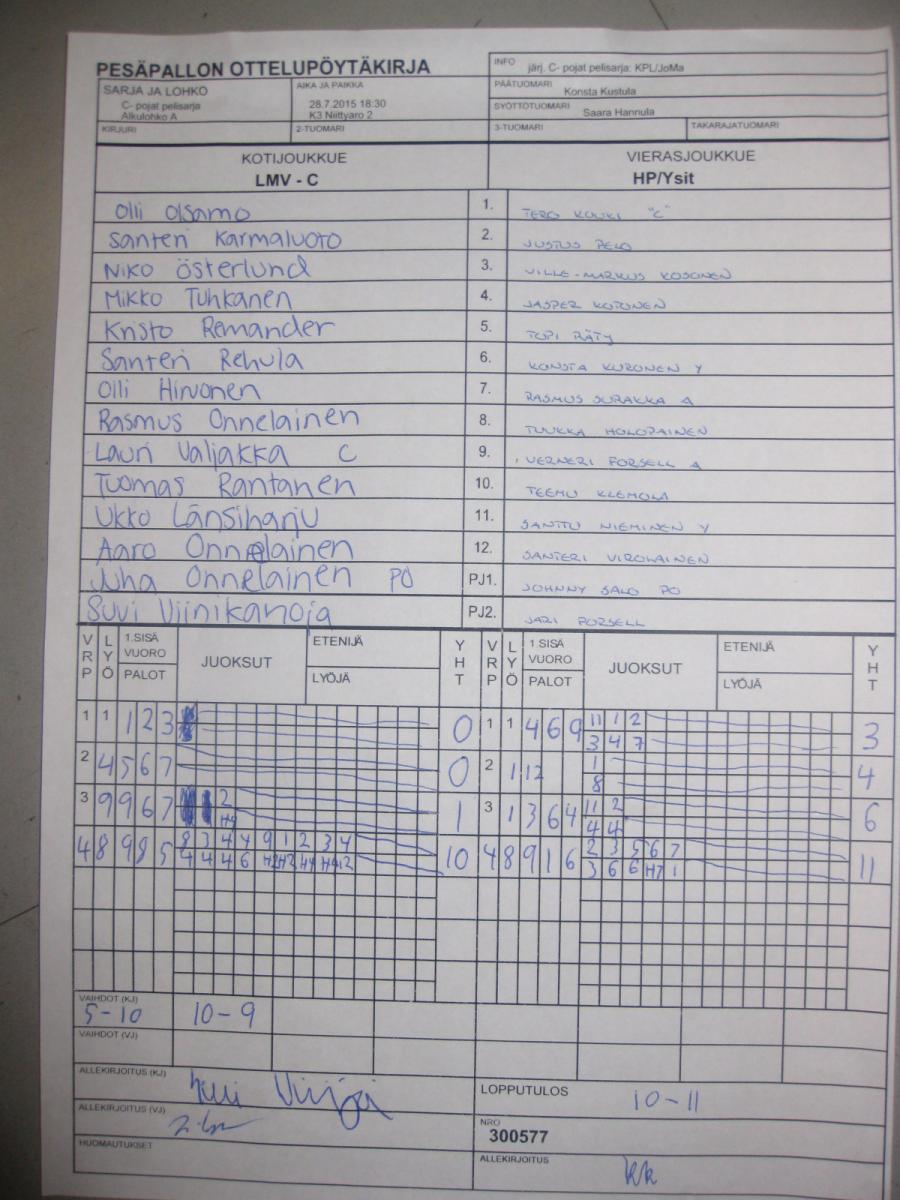 PESÄPALLON OTTELUPÖYTÄKIRJA
INFO järj. C- pojat pelisarja: KPL/JoMa
SARJA JA LOHKO
C- pojat pelisarja
Alkulohko A
AIKA JA PAIKKA
28.7.2015 18:30
K3 Niittyaro 2
PÄÄTUOMARI Konsta Kustula
SYÖTTÖTUOMARI Saara Hannula
KIRJURI 2-TUOMARI 3-TUOMARI TAKARAJATUOMARI
KOTIJOUKKUE VIERASJOUKKUE
LMV - C HP/Ysit
Olli Olsamo 1. TERO KOUKI "C"
Santeri Karmaluoto 2. JUSTUS PELO
Niko Österlund 3. VILLE-MARKUS KOSONEN
Mikko Tuhkanen 4. JASPER KOPONEN
Kristo Remander 5. TOPI RÄTY
Santeri Rehula 6. KONSTA KURONEN Y
Olli Hirvonen 7. RASMUS SURAKKA A
Rasmus Onnelainen 8. TUUKKA HOLOPAINEN
Lauri Valjakka C 9. VERNERI FORSELL A
Tuomas Rantanen 10. TEEMU KLEMOLA
Ukko Länsiharju 11. SANTTU NIEMINEN Y
Aaro Onnelainen 12. SANTERI VIROLAINEN
Juha Onnelainen PO PJ1. JOHNNY SALO PO
Suvi Viinikanoja PJ2. JARI FORSELL
VRP LYÖ 1.SISÄ VUORO PALOT JUOKSUT ETENIJÄ LYÖJÄ YHT VRP LYÖ 1.SISÄ VUORO PALOT JUOKSUT ETENIJÄ LYÖJÄ YHT
1 1 1 2 3 0 1 1 4 6 9 11 1 2 3
3 4 7
2 4 5 6 7 0 2 1 12 1 4
8
3 9 9 6 7 2 1 3 1 3 6 4 11 2 6
H4 4 4
4 8 9 8 5 8 3 4 4 9 1 2 3 4 10 4 8 9 1 6 2 3 5 6 7 11
4 4 4 6 H2 H2 H4 H4 12 3 6 6 H7 1
VAIHDOT (KJ)
5-10 10-9
VAIHDOT (VJ)
ALLEKIRJOITUS (KJ)
LOPPUTULOS 10-11
ALLEKIRJOITUS (VJ)
NRO
300577
HUOMAUTUKSET
ALLEKIRJOITUS KK